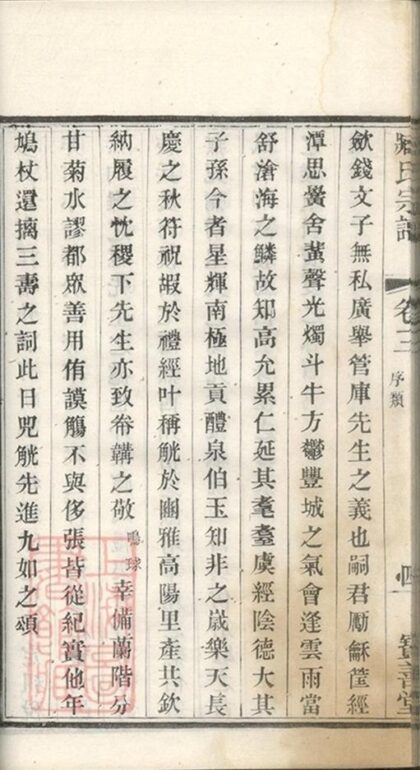 氏宗譜 卷三 序類 四 寶善堂
斂錢文子無私廣舉管庫先生之義也嗣君勵龢篚經
潭思黌舍蜚聲光燭斗牛方鬱豐城之氣會逢雲雨當
舒滄海之鱗故知高允累仁延其耄耋虞經陰德大其
子孫今者星輝南極地貢醴泉伯玉知非之歲樂天長
慶之秋符祝嘏於禮經叶稱觥於豳雅高陽里產共欽
納履之忱稷下先生亦致帣韝之敬鳴球幸備蘭階分
甘菊水謬都眾善用侑謨觴不與侈張皆從紀實他年
鳩杖還摛三壽之詞此日兕觥先進九如之頌